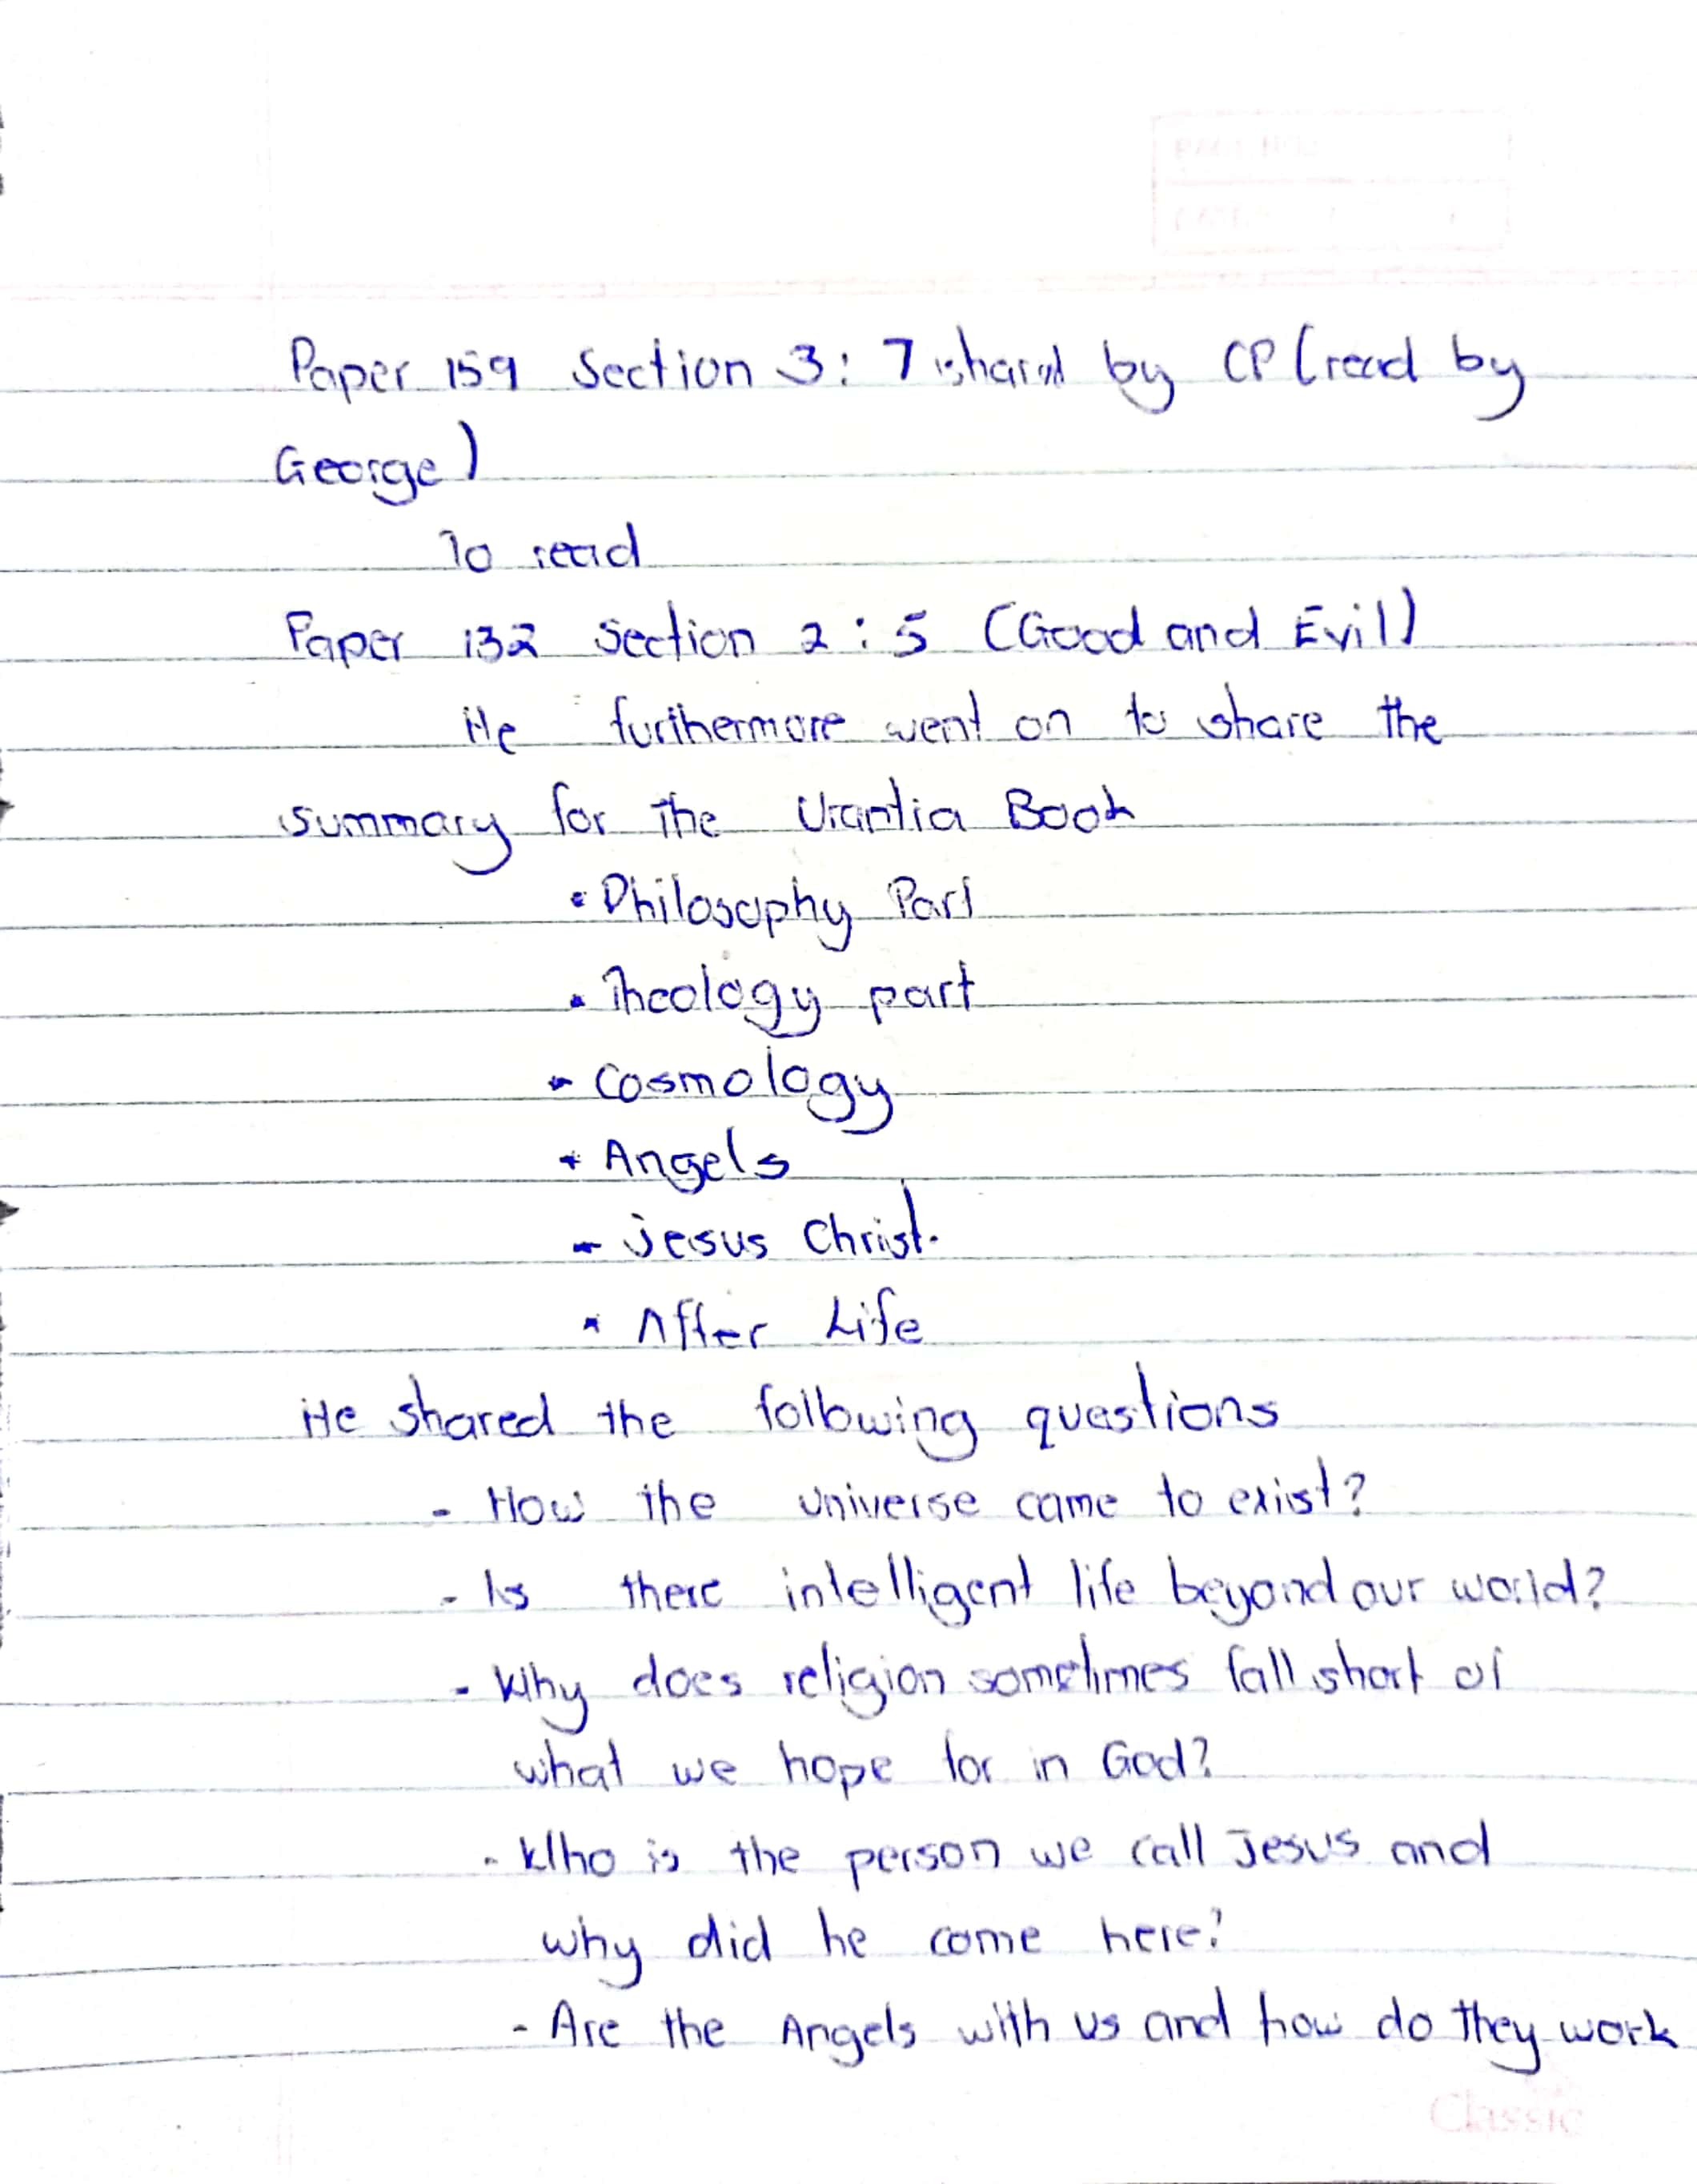 Paper 159 Section 3:7 shared by CP (read by
George)
To read
Paper 132 Section 2:5 (Good and Evil)
He furthermore went on to share the
summary for the Urantia Book
• Philosophy Part
• Theology part
• Cosmology
• Angels
- Jesus Christ.
• After Life
He shared the following questions
- How the universe came to exist?
- Is there intelligent life beyond our world?
- Why does religion sometimes fall short of
what we hope for in God?
- Who is the person we call Jesus and
why did he come here?
- Are the Angels with us and how do they work
Classic